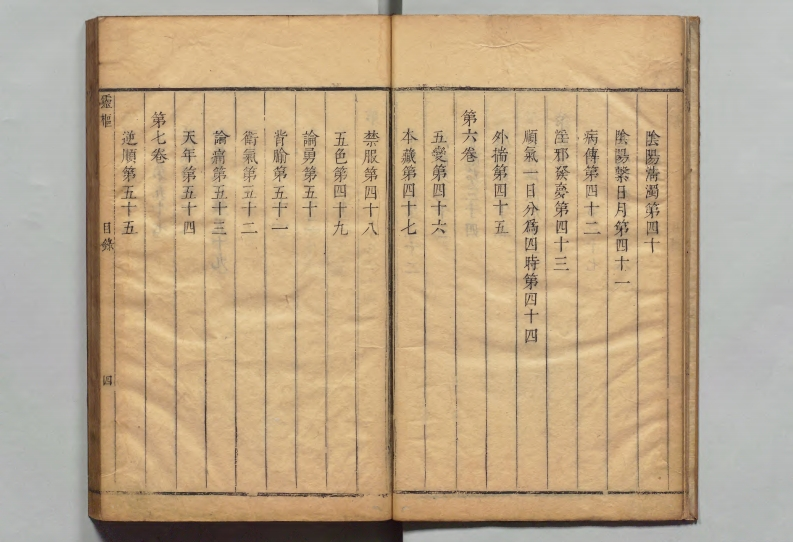 陰陽淸濁第四十
陰陽繫日月第四十一
病傳第四十二
淫邪發夢第四十三
順氣一日分爲四時第四十四
外揣第四十五
第六卷
五變第四十六
本藏第四十七
禁服第四十八
五色第四十九
論勇第五十
背腧第五十一
衛氣第五十二
論痛第五十三
天年第五十四
第七卷
逆順第五十五
靈樞
目錄
四